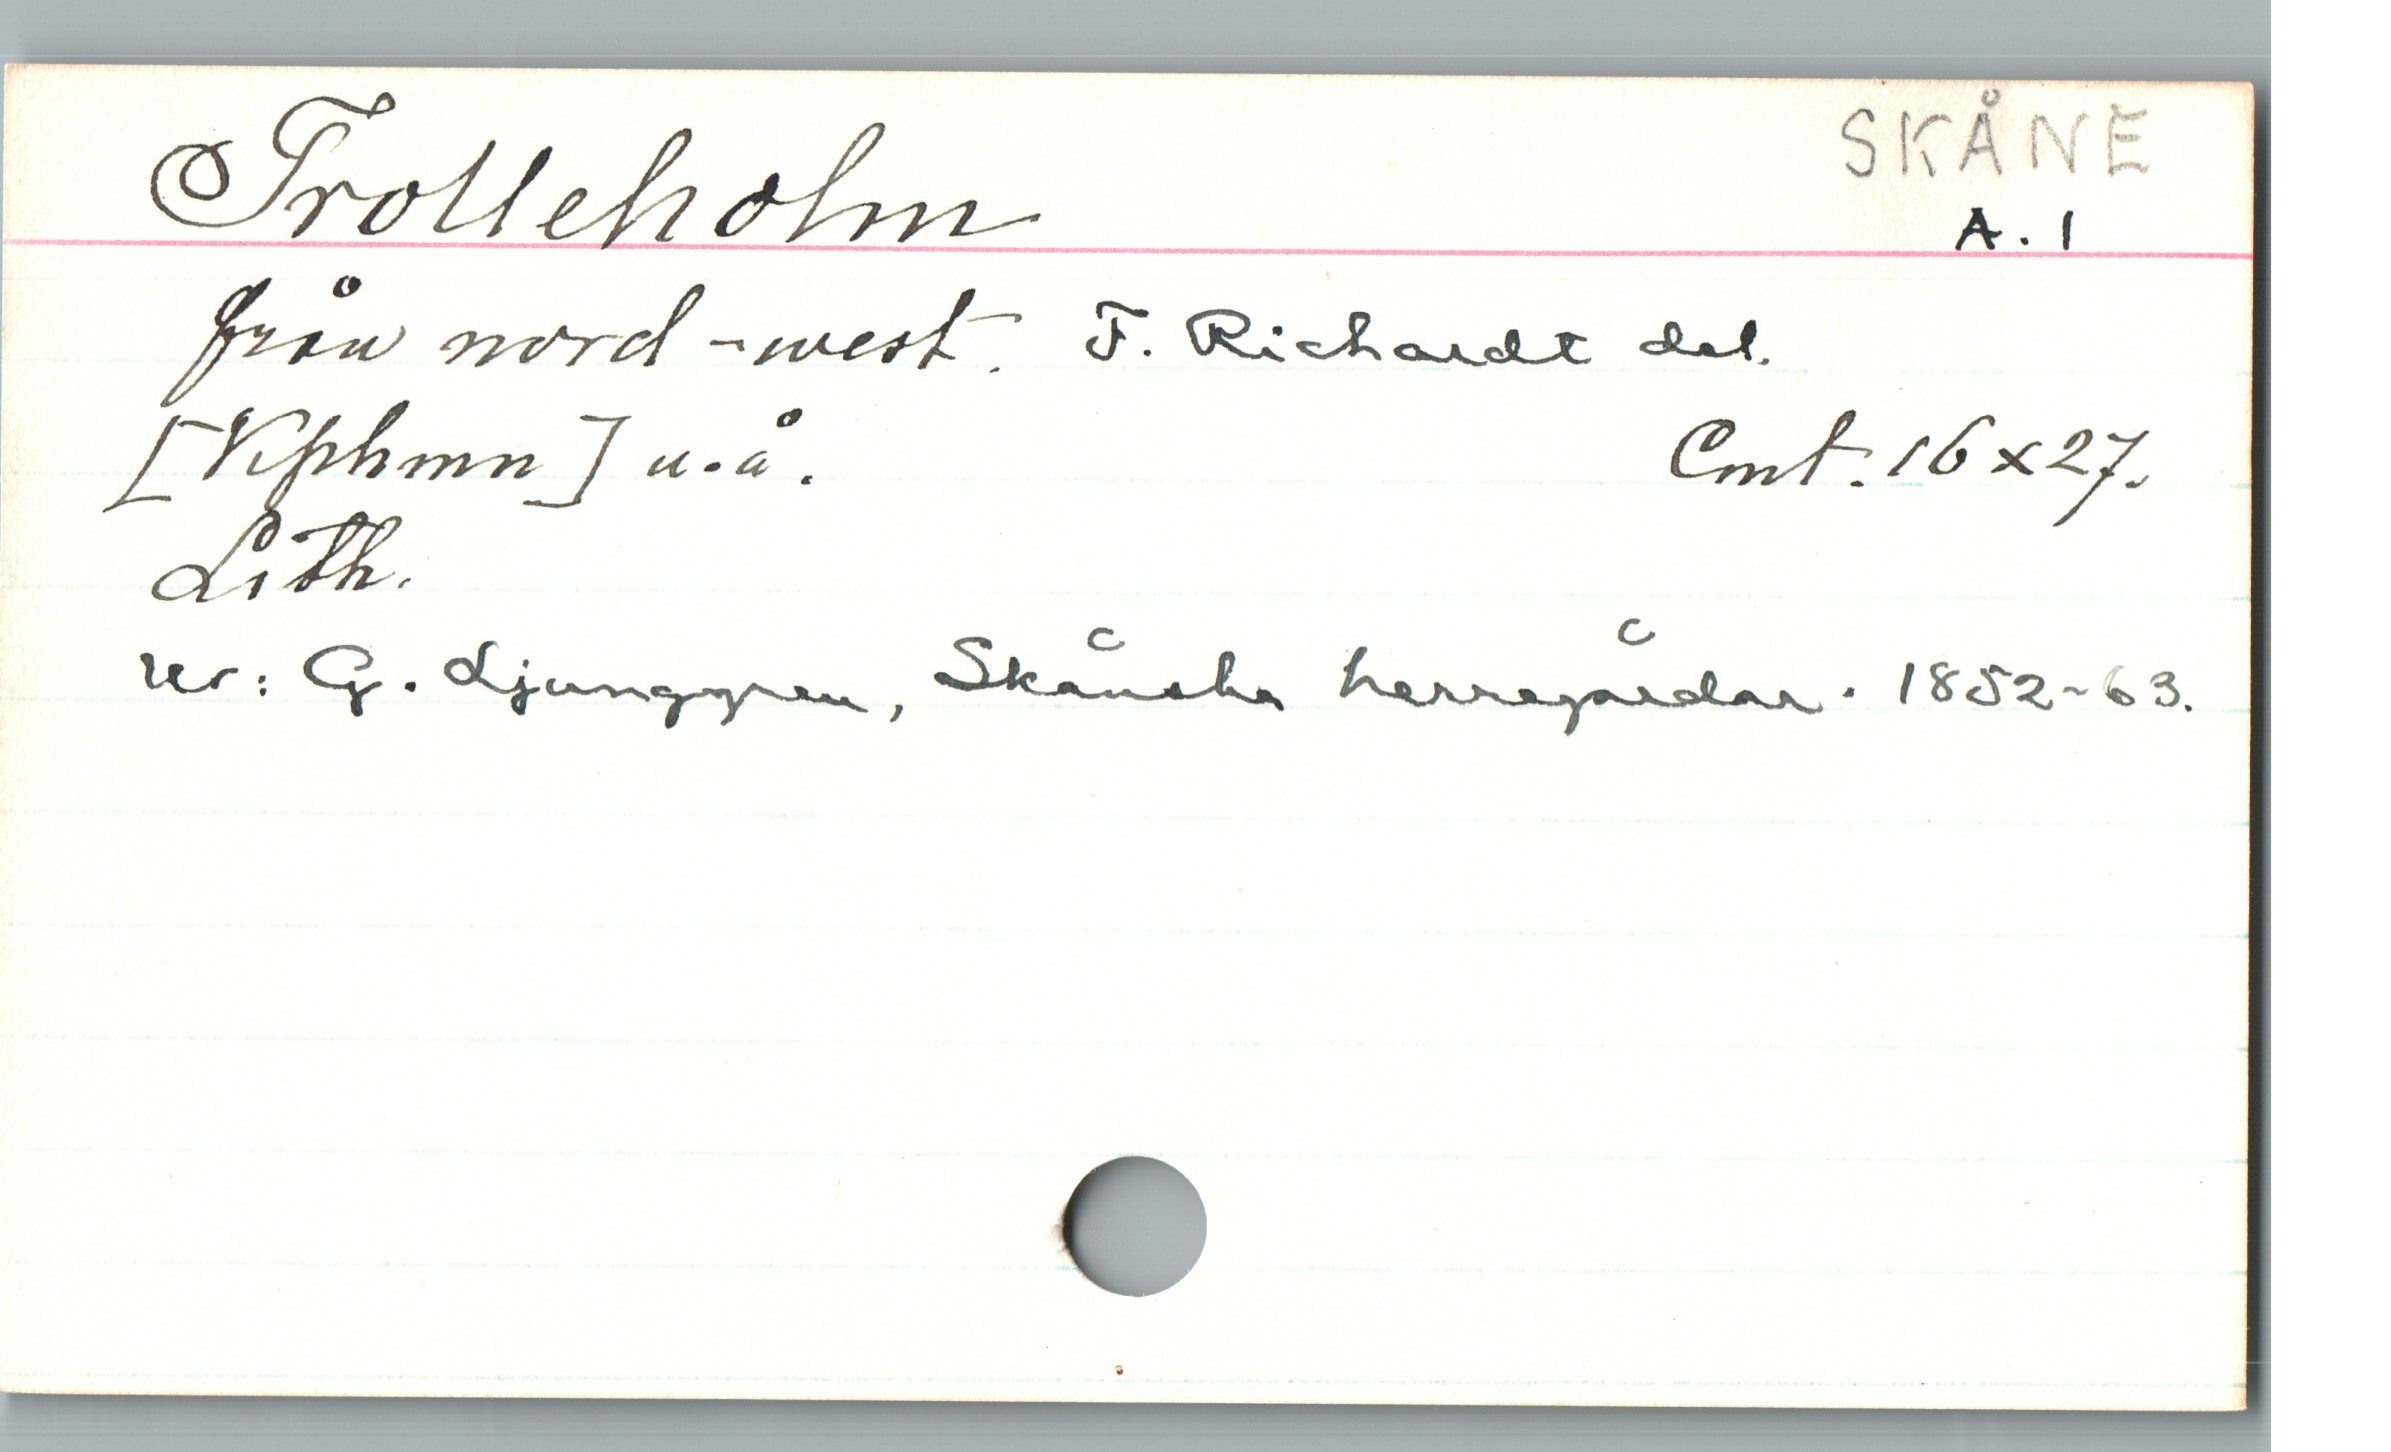 SKÅNE
Trolleholm
A. 1
från nord-west. F. Richardt del.
[Kphmn] u.å. Cmt. 16 x 27.
Lith.
Ur: G. Ljunggren, Skånska herregårdar. 1852-63.